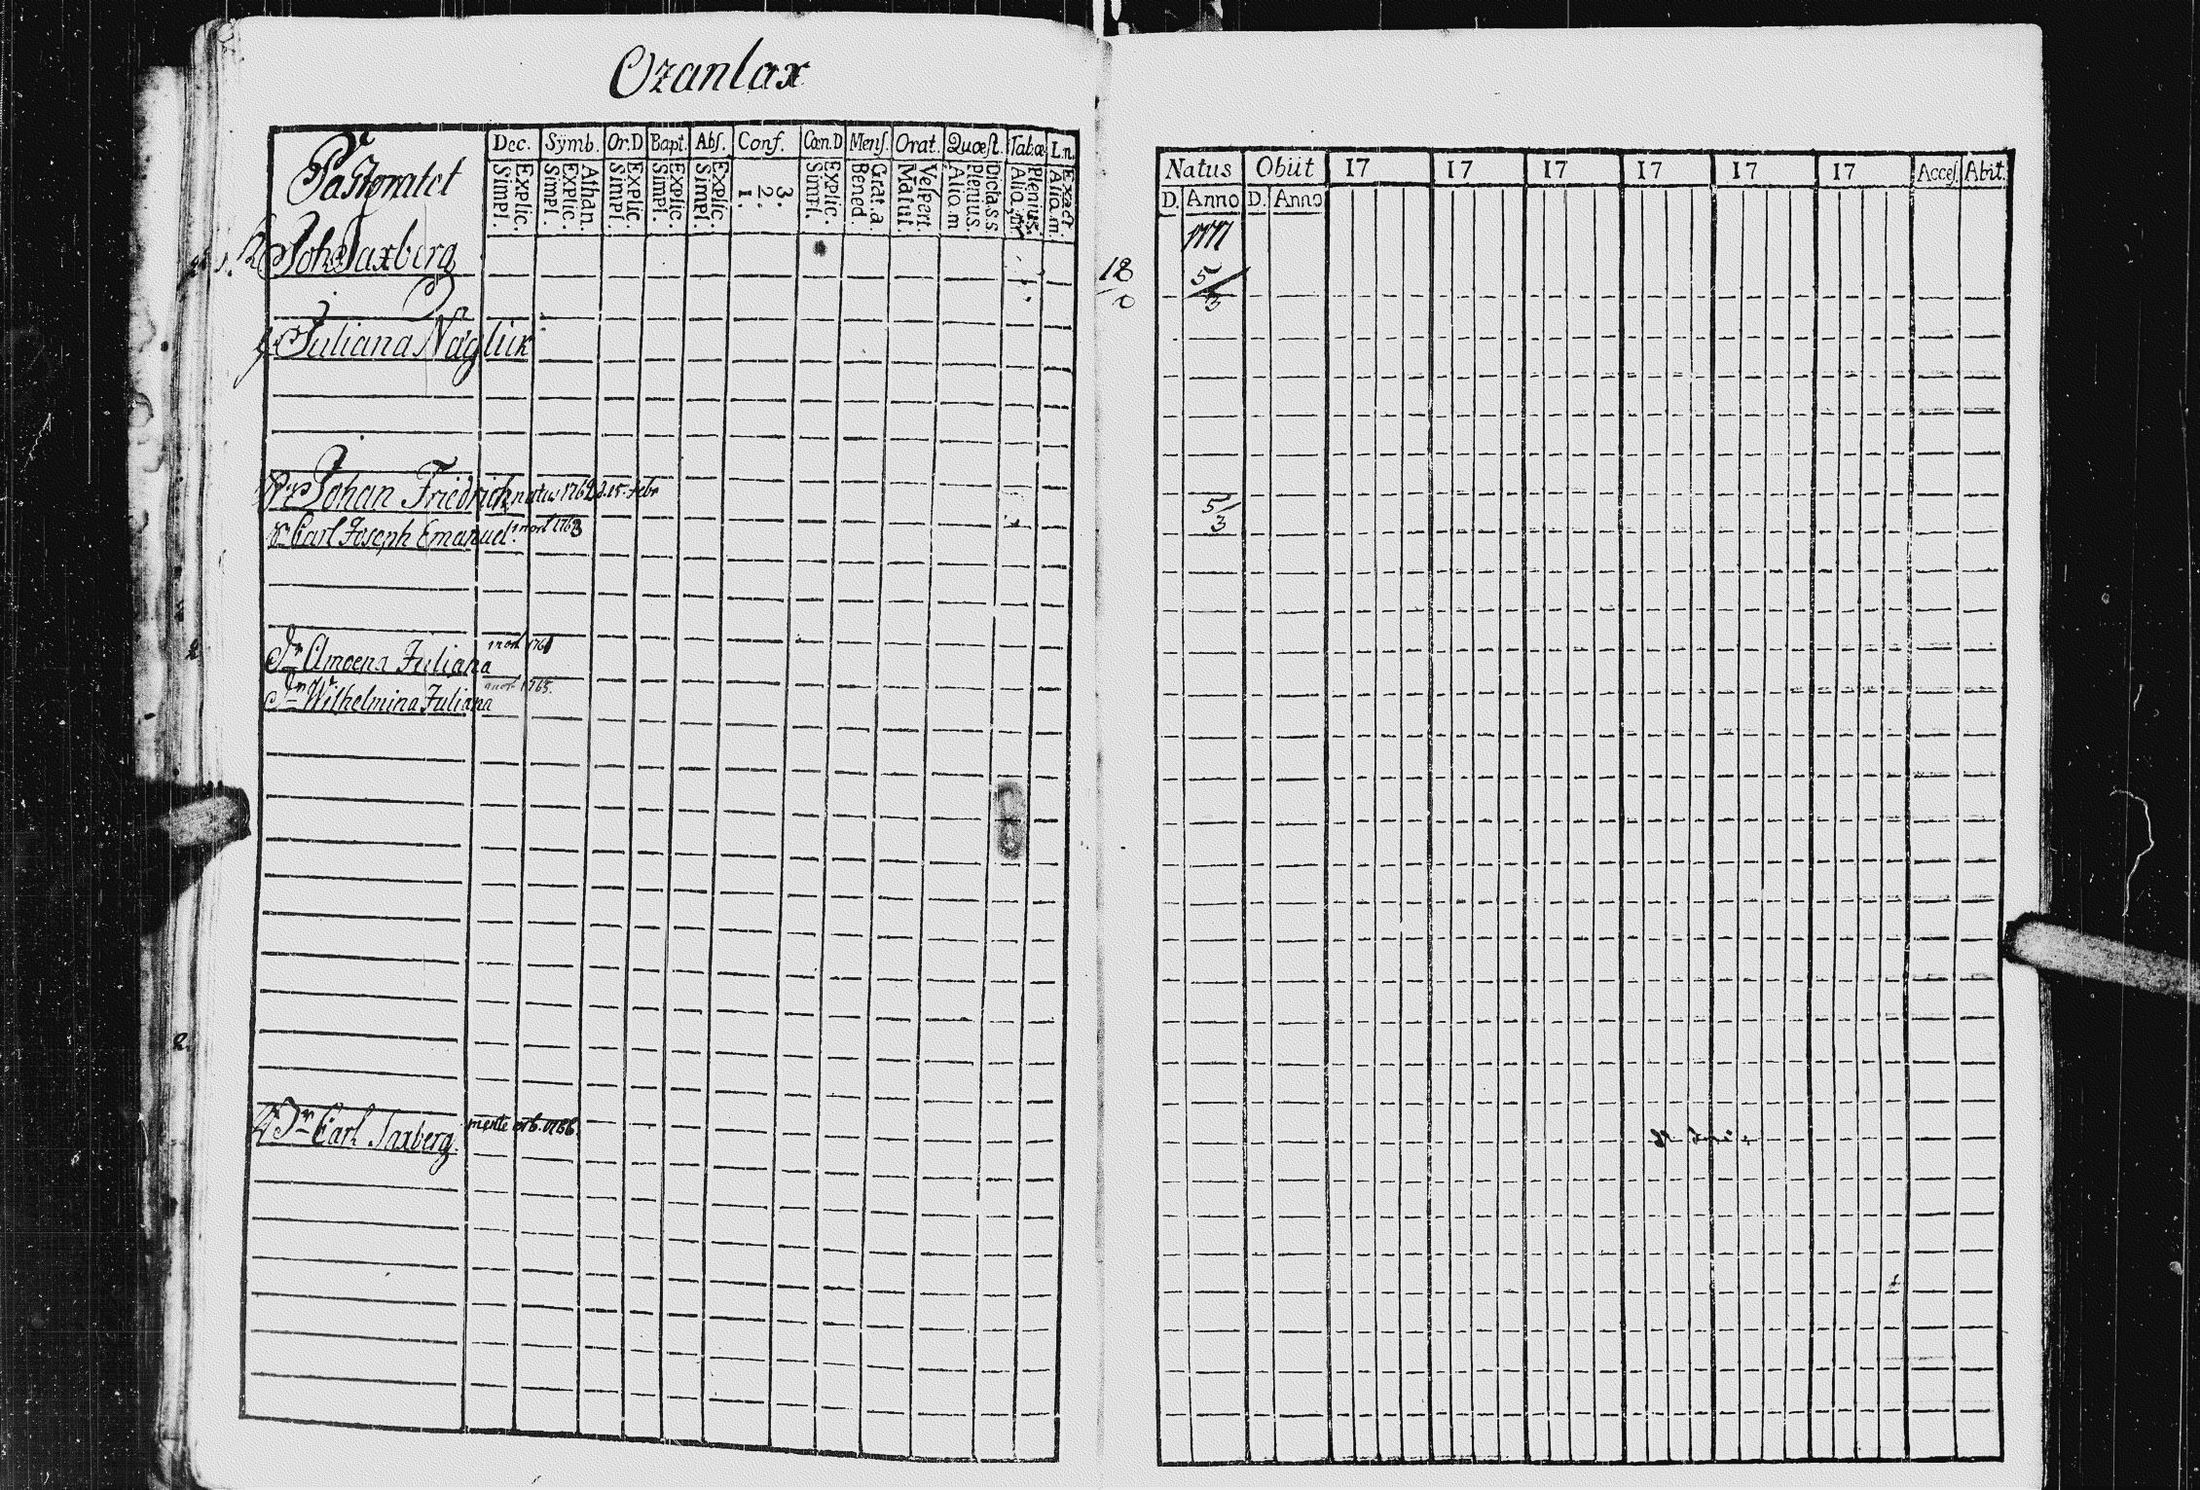 Oranlax
Pastoratet
Dec. Symb. Or.D Bapt. Abs. Conf. Cœn.D Mens. Orat. Quæst. Tabæ L.n.
Explic. Simpl. Athan. Explic. Simpl. Explic. Simpl. Explic. Simpl. Explic. Simpl. 3. 2. 1. Explic. Simpl. Grat.a. Bened. Vespert. Matut. Dicta.s.s. Plenius. Alio.m Plenius. Alio.m Exact. Alia.m.
Joh: Saxberg
Juliana Näglick
Johan Friedrich natus 1762 d. 15. Febr
Carl Joseph Emanuel. mort 1763
Dr Amoena Juliana mort 1761
Dr Wilhelmina Juliana mort 1765.
Carl Saxberg. mente
Natus Obiit 17 17 17 17 17 17 Acces. Abit.
D. Anno D. Anno
1777
18
5/3
5/3